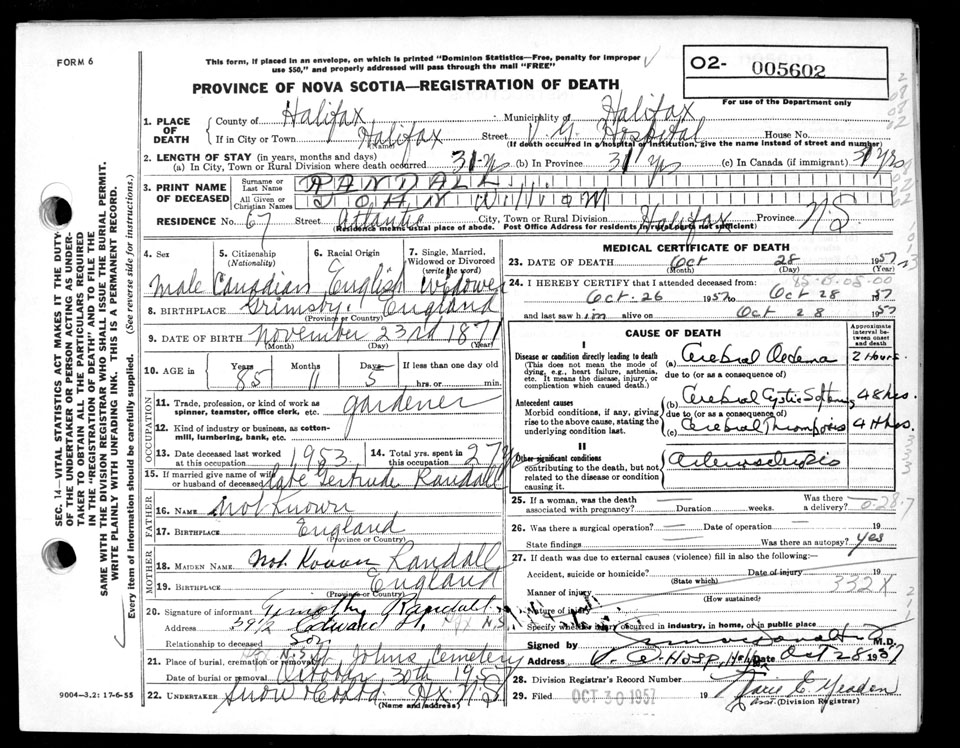 FORM 6
This form, if placed in an envelope, on which is printed "Dominion Statistics—Free, penalty for improper use $50," and properly addressed will pass through the mail "FREE"
O2- 005602
For use of the Department only
PROVINCE OF NOVA SCOTIA—REGISTRATION OF DEATH
SEC. 14—VITAL STATISTICS ACT MAKES IT THE DUTY OF THE UNDERTAKER OR PERSON ACTING AS UNDERTAKER TO OBTAIN ALL THE PARTICULARS REQUIRED IN THE "REGISTRATION OF DEATH" AND TO FILE THE SAME WITH THE DIVISION REGISTRAR WHO SHALL ISSUE THE BURIAL PERMIT.
WRITE PLAINLY WITH UNFADING INK. THIS IS A PERMANENT RECORD.
Every item of information should be carefully supplied. (See reverse side for instructions.)
1. PLACE OF DEATH County of Halifax Municipality of Halifax
If in City or Town Halifax (Name) Street V. G. Hospital House No.
(If death occurred in a hospital or institution, give the name instead of street and number)
2. LENGTH OF STAY (in years, months and days)
(a) In City, Town or Rural Division where death occurred 31 yrs (b) In Province 31 yrs (c) In Canada (if immigrant) 31 yrs
3. PRINT NAME OF DECEASED Surname or Last Name RANDALL
All Given or Christian Names JOHN William
RESIDENCE No. 67 Street Atlantic City, Town or Rural Division Halifax Province N.S.
(Residence means usual place of abode. Post Office Address for residents in rural parts not sufficient)
4. Sex 5. Citizenship (Nationality) 6. Racial Origin 7. Single, Married, Widowed or Divorced (write the word)
Male Canadian English Widower
8. BIRTHPLACE Grimsby, England
(Province or Country)
9. DATE OF BIRTH November 23rd 1871
(Month) (Day) (Year)
10. AGE in Years 85 Months 11 Days 5 If less than one day old hrs. or min.
OCCUPATION
11. Trade, profession, or kind of work as spinner, teamster, office clerk, etc. gardener
12. Kind of industry or business, as cotton-mill, lumbering, bank, etc.
13. Date deceased last worked at this occupation 1953 14. Total yrs. spent in this occupation 27 yrs
15. If married give name of wife or husband of deceased late Gertrude Randall
FATHER
16. NAME Not Known
17. BIRTHPLACE England
(Province or Country)
MOTHER
18. MAIDEN NAME Not Known Randall
19. BIRTHPLACE England
(Province or Country)
20. Signature of informant Timothy Randall
Address 39 1/2 Edward St. Hx N.S.
Relationship to deceased Son
21. Place of burial, cremation or removal St Johns Cemetery
Date of burial or removal October 30th 1957
22. UNDERTAKER Snow & Co Ltd. Hx. N.S.
(Name and address)
9004-3.2: 17-6-55
MEDICAL CERTIFICATE OF DEATH
23. DATE OF DEATH Oct 28 1957
(Month) (Day) (Year)
24. I HEREBY CERTIFY that I attended deceased from:
Oct. 26 1957 to Oct 28 1957
and last saw him alive on Oct 28 1957
CAUSE OF DEATH
Approximate interval between onset and death
I
Disease or condition directly leading to death (This does not mean the mode of dying, e.g., heart failure, asthenia, etc. It means the disease, injury, or complication which caused death.)
(a) Cerebral Oedema 2 Hours.
due to (or as a consequence of)
Antecedent causes
Morbid conditions, if any, giving rise to the above cause, stating the underlying condition last.
(b) Cerebral Cystic Softening 48 hrs.
due to (or as a consequence of)
(c) Cerebral Thrombosis
II
Other significant conditions contributing to the death, but not related to the disease or condition causing it.
Arteriosclerosis
25. If a woman, was the death associated with pregnancy? — Duration weeks. Was there a delivery?
26. Was there a surgical operation? — Date of operation — 19
State findings Was there an autopsy? yes
27. If death was due to external causes (violence) fill in also the following:—
Accident, suicide or homicide? Date of injury 19
(State which)
Manner of injury 332X
(How sustained)
Nature of injury
Specify whether injury occurred in industry, in home, or in public place
Signed by M.D.
Address V. G. Hosp, Hx Date Oct 28 1957
28. Division Registrar's Record Number
29. Filed OCT 30 1957 19
Asst. (Division Registrar)